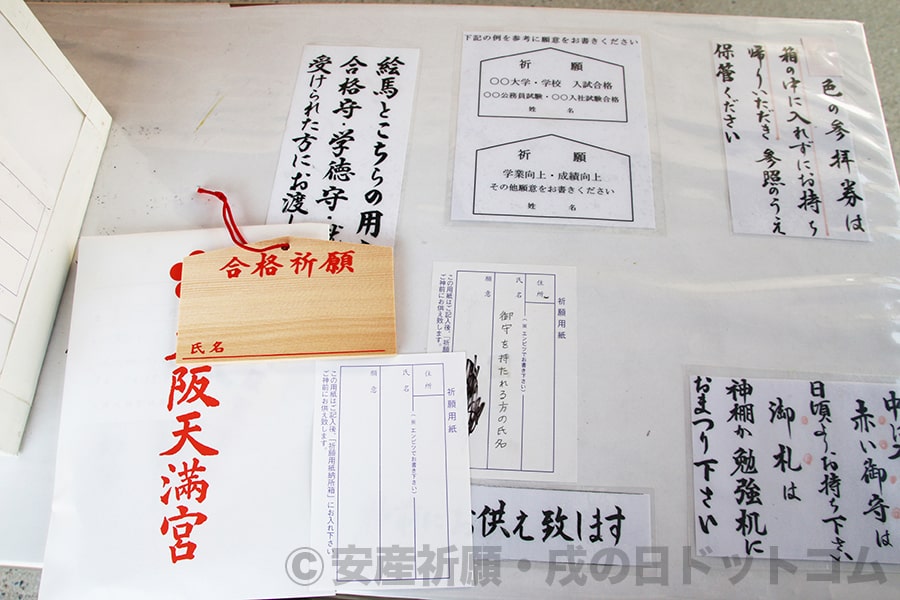 下記の例を参考に願意をお書きください
祈　願
○○大学・学校　入試合格
○○公務員試験・○○入社試験合格
姓　名
祈　願
学業向上・成績向上
その他願意をお書きください
姓　名
色の参拝券は
箱の中に入れずにお持ち
帰りいただき 参照のうえ
保管ください
絵馬とこちらの用
合格守・学徳守・
受けられた方にお渡し
合格祈願
氏名
阪天満宮
祈願用紙
住所
氏名
(※エンピツでお書き下さい)
御守を持たれる方の氏名
願意
この用紙はご記入後、「祈願
ご神前にお供え致します。
祈願用紙
住所
氏名
(※エンピツでお書き下さい)
願意
この用紙はご記入後、「祈願用紙納所箱」にお入れ下さい。
ご神前にお供え致します。
お供え致します
赤い御守は
日頃よりお持ち下さい
御札は
神棚か勉強机に
おまつり下さい
© 安産祈願・戌の日ドットコム